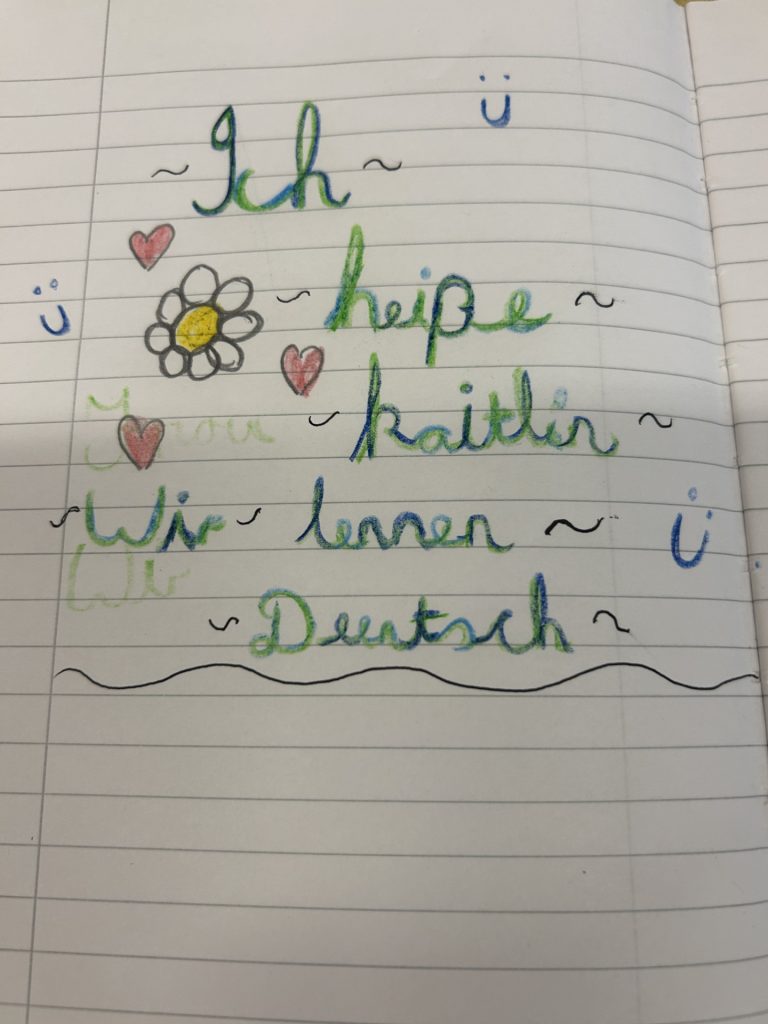 ~ Ich ~
~ heiße ~
~ kaitlin ~
~ Wir ~ lernen ~
Wir
~ Deutsch ~